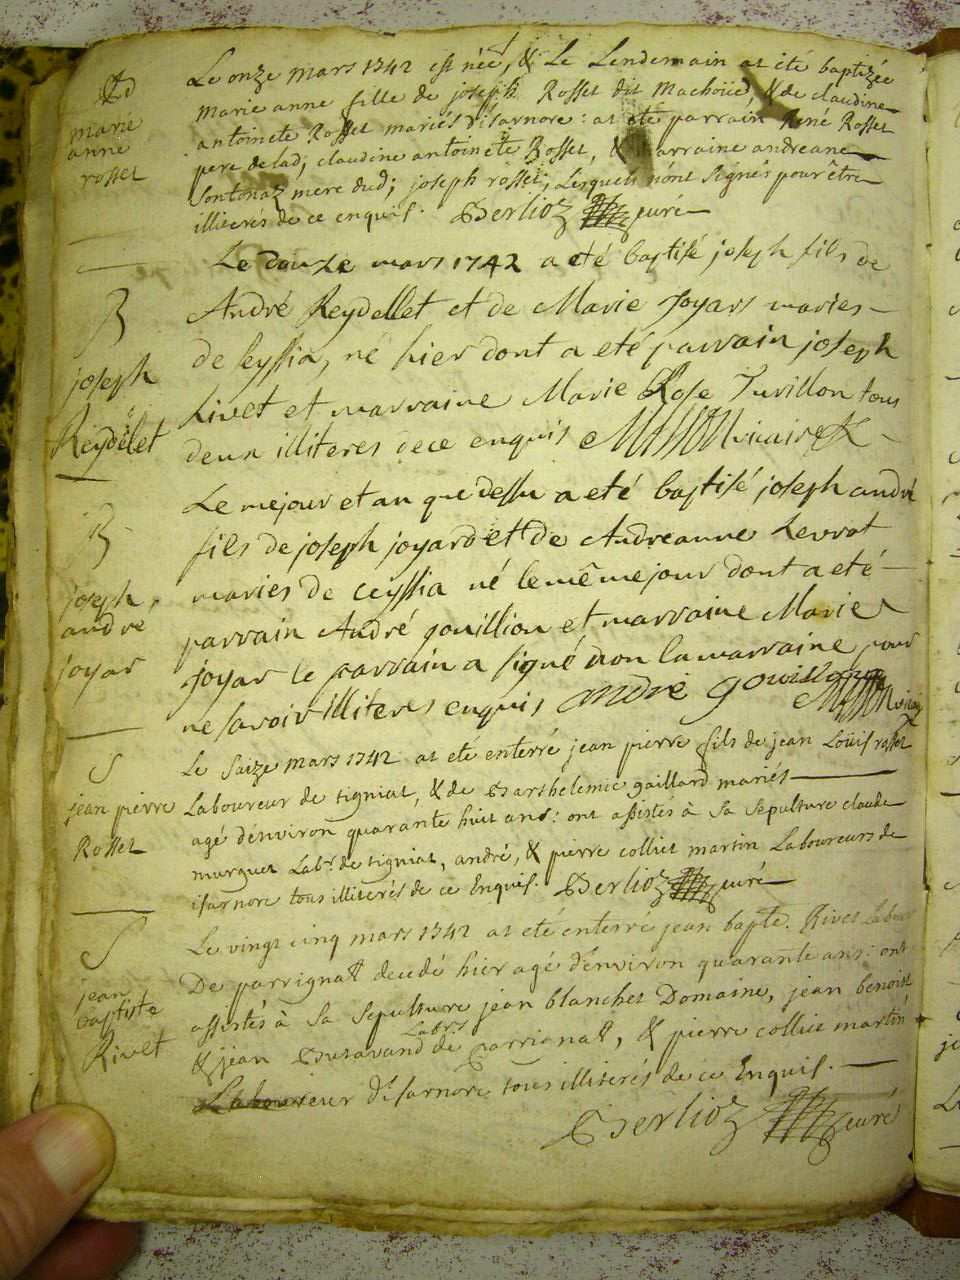 Bd
marie
anne
rosset
Le onze mars 1742 est née, & Le Lendemain at eté baptizée
marie anne fille de joseph Rosset dit Machoüe, & de claudine
antoinete Rosset mariés d'isarnore: at eté parrain René Rosset
pere de lad; claudine antoinete Rosset, & marraine andreane
Sontonaz mere dud; joseph rosset; Lesquels n'ont Signés pour être
illiterés de ce enquis. Berlioz curé
B
joseph
Reydelet
Le douze mars 1742 a eté baptisé joseph fils de
André Reydellet et de Marie Joyars maries
de Ceyssia, né hier dont a eté parrain joseph
Rivet et marraine Marie Rose Turillon tous
deux illiteres de ce enquis Masson vicaire
B
joseph,
andre
joyar
Le mejour et an que dessu a eté baptisé joseph andré
fils de joseph joyard et de Andreanne Levrat
maries de ceyssia né le même jour dont a eté
parrain André gouillion et marraine Marie
Joyar le parrain a signé non la marraine pour
ne savoir illiteres enquis andré gouillon Masson vicaire
S
jean pierre
Rosset
Le Saize mars 1742 at eté enterré jean pierre fils de jean Loüis rosset
Laboureur de tigniat, & de Barthelemie gaillard mariés
agé d'énviron quarante huit ans: ont assistés à Sa Sepulture claude
murguet Labr. de tigniat, andré, & pierre colliet martin Laboureurs de
isarnore tous illiterés de ce Enquis. Berlioz curé
S
jean
baptiste
Rivet
Le vingt cinq mars 1742 at eté enterré jean bapte. Rivet Labour
De parrignat decedé hier agé d'énviron quarante ans: ont
assistés à Sa Sepulture jean blanchet Domaine, jean benoist
Labrs
& jean Butavand de parrignat, & pierre colliet martin
Laboureur d'isarnore tous illiterés de ce Enquis.
Berlioz curé